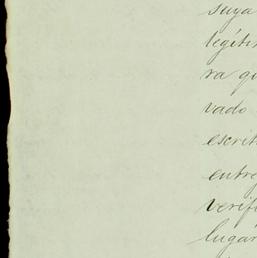 suya
legíti
ra qu
vado
escrit
entre
verifi
lugar